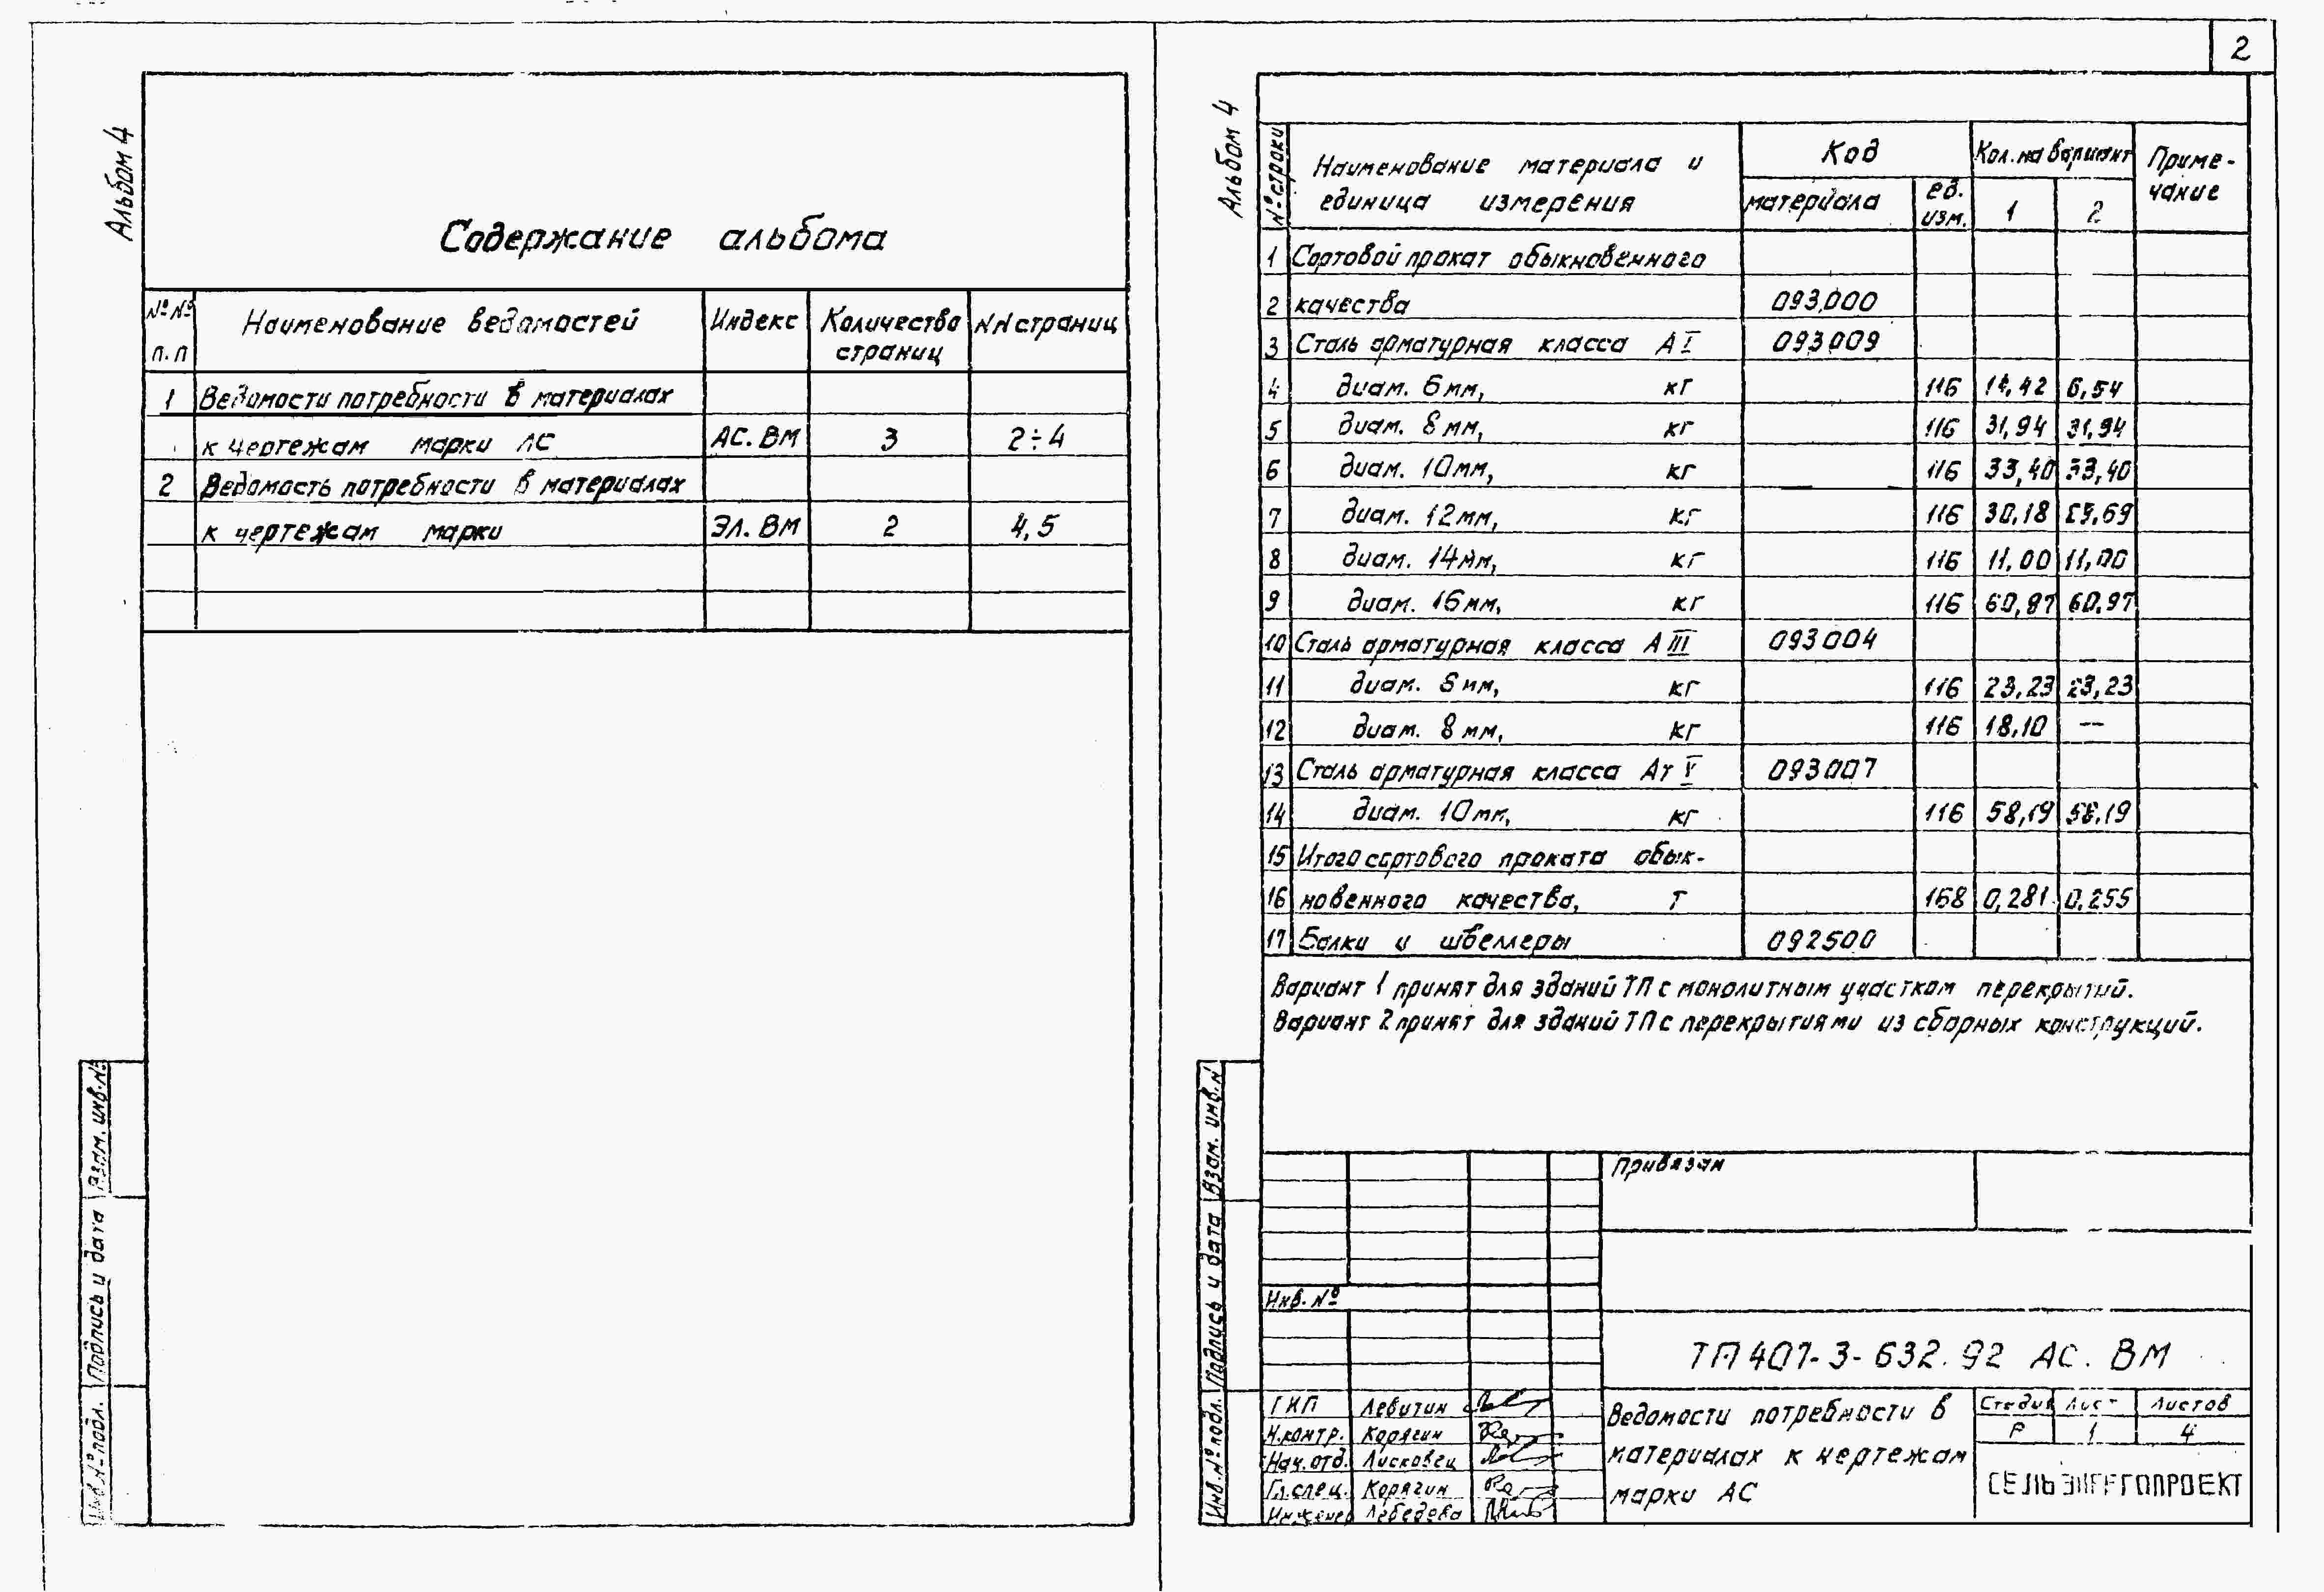 2
Альбом 4
Содержание альбома
№№ п.п | Наименование ведомостей | Индекс | Количество страниц | NN страниц
1 | Ведомости потребности в материалах
к чертежам марки АС | АС.ВМ | 3 | 2÷4
2 | Ведомость потребности в материалах
к чертежам марки | ЭЛ.ВМ | 2 | 4,5
Взам. инв.№
Подпись и дата
Инв.№ подл.
Альбом 4
№ строки | Наименование материала и единица измерения | Код | Кол. на вариант | Примечание
материала | ед. изм. | 1 | 2
1 Сортовой прокат обыкновенного
2 качества 093000
3 Сталь арматурная класса А I 093009
4 диам. 6мм, кг 116 6,54
5 диам. 8мм, кг 116 31,94 31,94
6 диам. 10мм, кг 116 33,40 33,40
7 диам. 12мм, кг 116 30,18
8 диам. 14мм, кг 116 11,00 11,00
9 диам. 16мм, кг 116 60,97
10 Сталь арматурная класса А III 093004
11 диам. мм, кг 116 23,23 23,23
12 диам. 8мм, кг 116 18,10 —
13 Сталь арматурная класса Ат V 093007
14 диам. 10мм, кг 116 58,19 58,19
15 Итого сортового проката обык-
16 новенного качества, т 168 0,281 0,255
17 Балки и швеллеры 092500
Вариант 1 принят для зданий ТП с монолитным участком перекрытий.
Вариант 2 принят для зданий ТП с перекрытиями из сборных конструкций.
Взам. инв.N
Подпись и дата
Инв.№ подл.
Привязан
Инв. №
ТП 407-3-632.92 АС. ВМ
ГИП Левитин
Н.контр. Корягин
Нач.отд. Лисковец
Гл.спец. Корягин
Инженер Лебедева
Ведомости потребности в
материалах к чертежам
марки АС
Стадия Лист Листов
Р 1 4
СЕЛЬЭНЕРГОПРОЕКТ